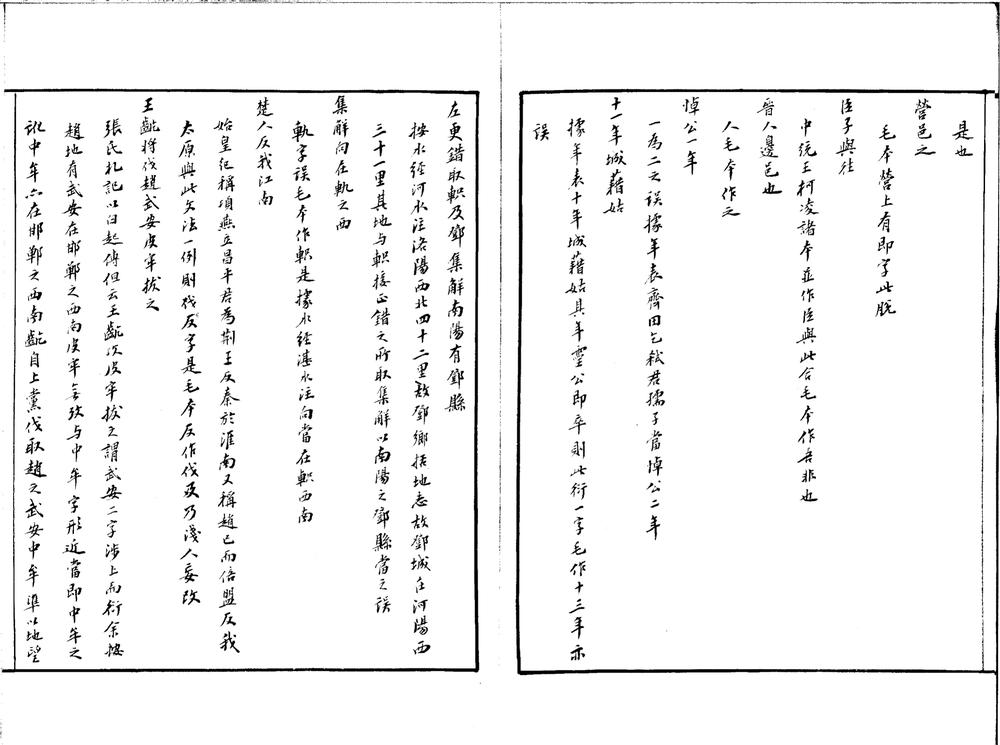 是也
營邑之
毛本營上有即字此脫
臣子與往
中統王柯凌諸本並作臣與此合毛本作吾非也
晉人邊邑也
人毛本作之
悼公一年
一為二之誤據年表齊田乞弒君孺子當悼公二年
十一年城藉姑
據年表十年城藉姑其年靈公即卒則此衍一字毛作十三年亦
誤
左更錯取軹及鄧集解南陽有鄧縣
按水經河水注洛陽西北四十二里故鄧鄉括地志故鄧城在河陽西
三十一里其地与軹接正錯之所取集解以南陽之鄧縣當之誤
集解向在軌之西
軌字誤毛本作軹是據水經湛水注向當在軹西南
楚人反我江南
始皇紀稱項燕立昌平君為荊王反秦於淮南又稱趙已而倍盟反我
太原與此文法一例則我反字是毛本反作伐及乃淺人妄改
王齕將伐趙武安皮牢拔之
張氏札記以白起傳但云王齕攻皮牢拔之謂武安二字涉上而衍余按
趙地有武安在邯鄲之西南皮牢無攷与中牟字形近當即中牟之
訛中牟亦在邯鄲之西南齕自上黨伐取趙之武安中牟準以地望